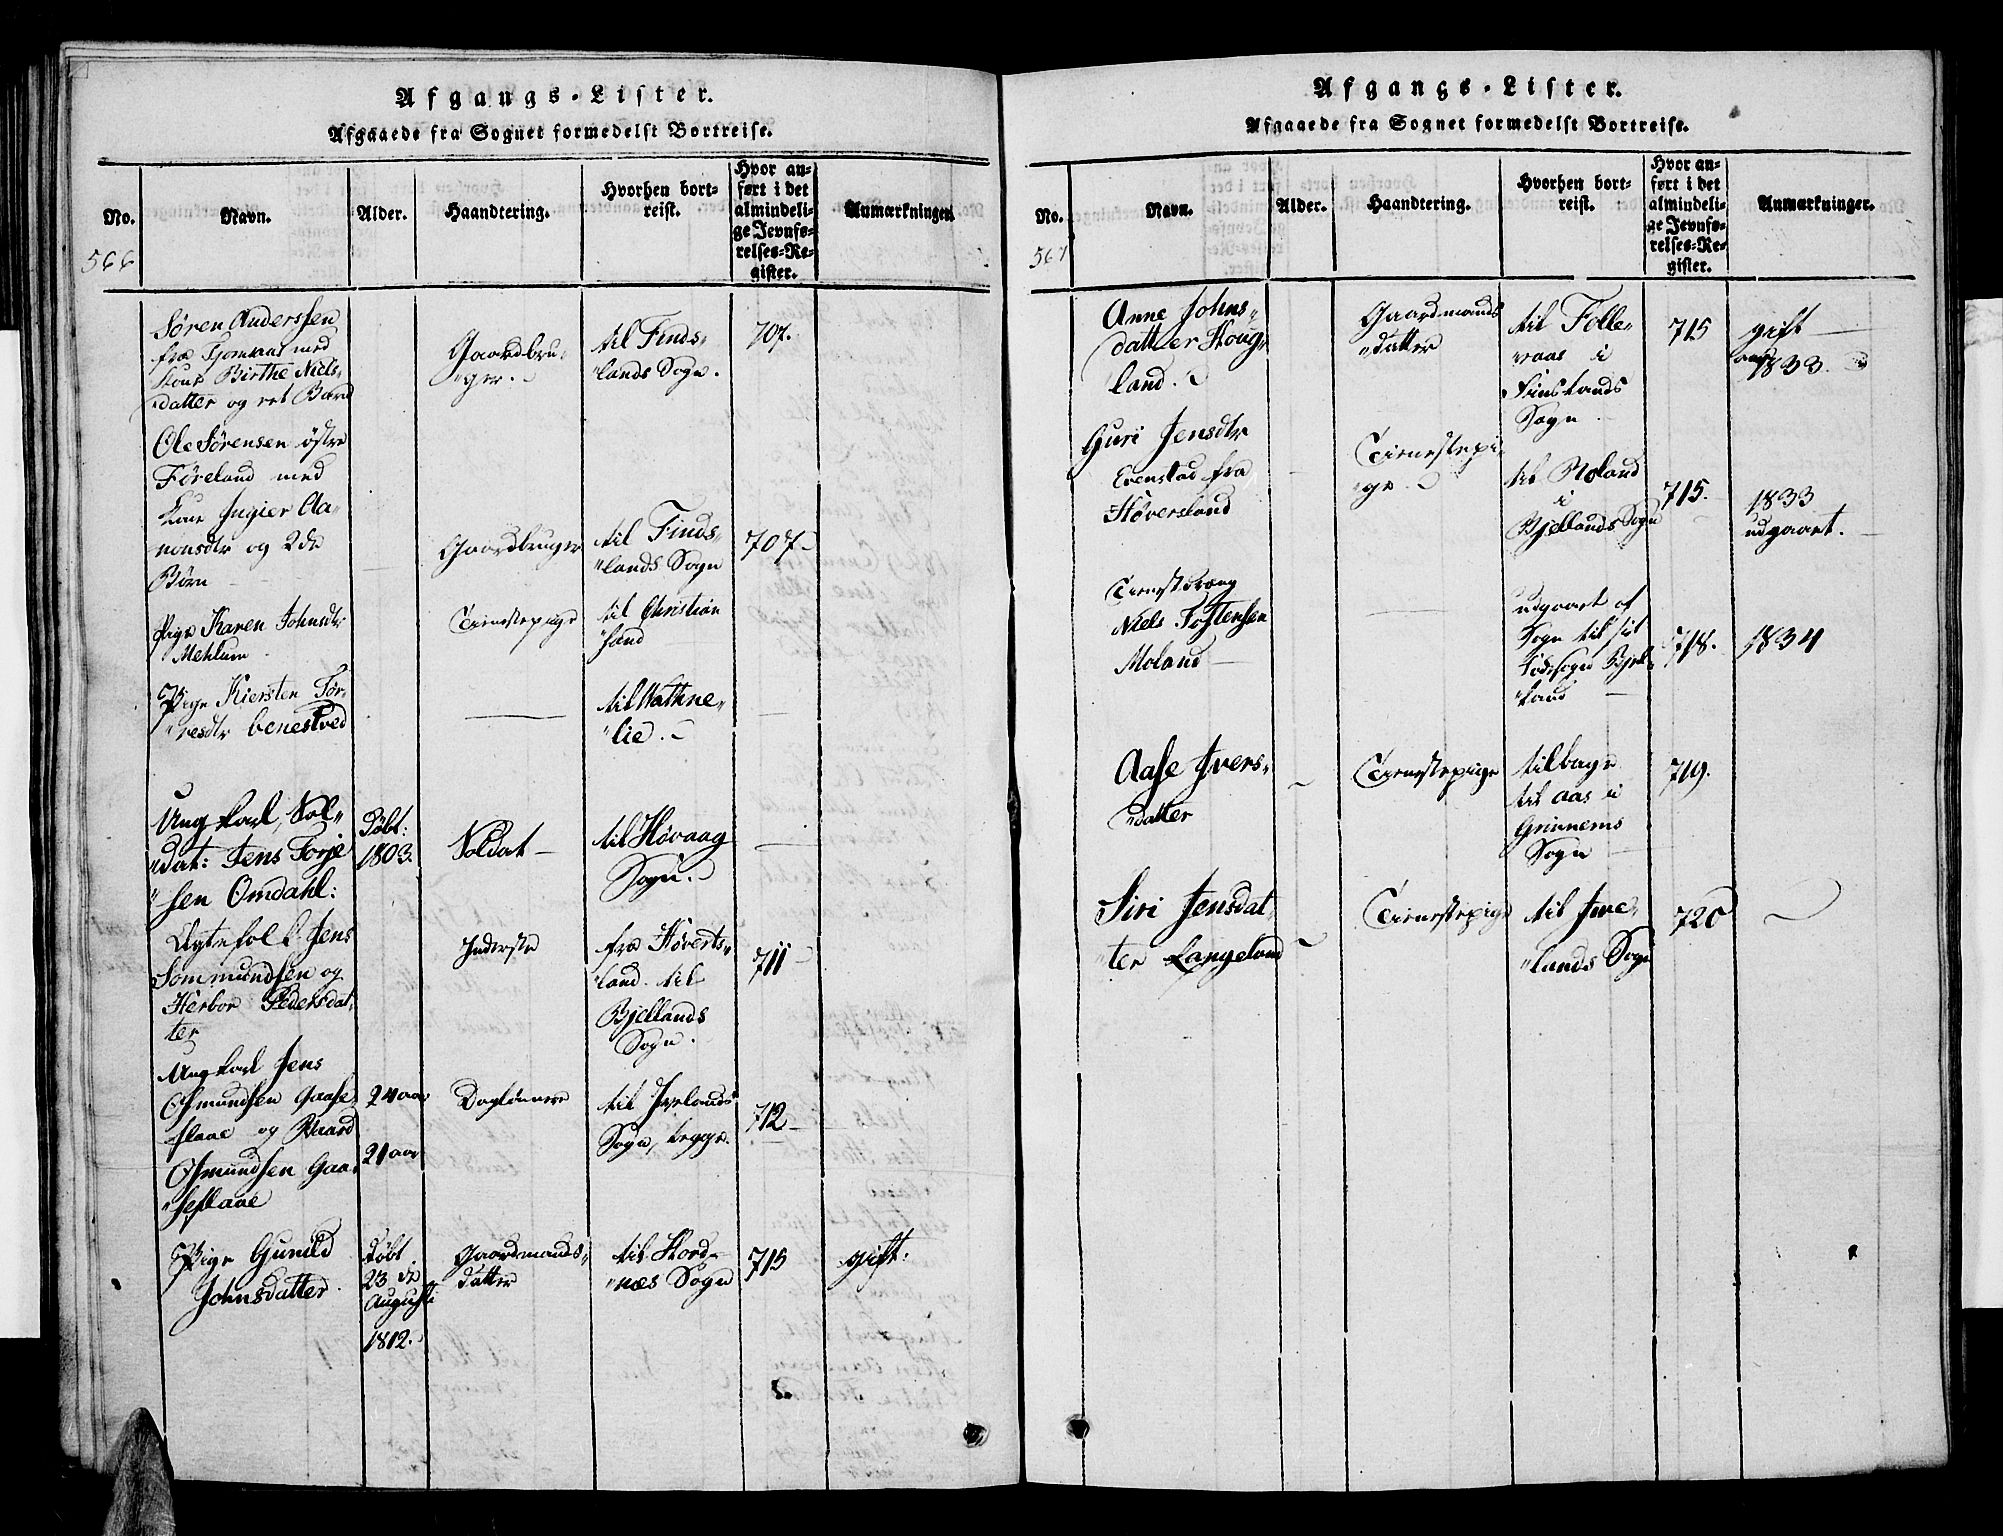 Afgangs-Lister.
Afgaaede fra Sognet formedelst Bortreise.
No.
Navn.
Alder.
Haandtering.
Hvorhen bort-
reist.
Hvor an-
ført i det
almindeli-
ge Jevnfø-
relses-Re-
gister.
Anmærkninger.
566
Søren Anderssen
fra med
Kone Birthe Niels-
datter og et Barn
Gaardbru-
ger.
til Finds-
lands Sogn.
707.
Ole Sørensen østre
Føreland med
Kone Ingier Aa-
nonsdtr og 2de
Børn
Gaardbruger
til Finds-
lands Sogn
707
Pige Karen Johnsdtr
Mehlum
Tienestepige
til Christian
sand
Pige Kiersten Tør-
resdtr benestved
til Wathne-
lie.
Ungkarl, Sol-
dat: Jens Torje
sen Omdahl:
Døbt:
1803.
Soldat
til Høvaag
Sogn.
Ægtefolk Jens
Sommundsen og
Herbor Pedersdat-
ter
Inderste
fra Høverts-
land til
Bjellands
Sogn.
711
Ungkarl Jens
Osmundsen Gaase-
flaae og
Osmundsen Gaa-
seflaae
24 aar
21 aar
Daglønnere
til Ivelands
Sogn, begge.
712
Pige Gunild
Johnsdatter
Døbt
23 de
Augusti
1812.
Gaardmands-
datter
til Hord-
næs Sogn
715
gift:
Afgangs-Lister.
Afgaaede fra Sognet formedelst Bortreise.
No.
Navn.
Alder.
Haandtering.
Hvorhen bort-
reist.
Hvor an-
ført i det
almindeli-
ge Jevnfø-
relses-Re-
gister.
Anmærkninger.
567
Anne Johns-
datter Houg-
land.
Gaardmands
datter
til Folle-
raas i
Finslands
Sogn
715
gift
1833.
Guri Jensdtr
Evenstad fra
Høversland
Tienestepi-
ge
til Roland
i
Bjellands Sogn
715.
1833
udgaaet.
Tienestdreng
Niels Tostensen
Moland
udgaaet af
Sogn til sit
Fødesogn Bjel-
land
718.
1834
Aase Ivers-
datter
Tienestepige
tilbage
til Aas i
Grinnems
Sogn
719.
Siri Jensdat-
ter Langeland
Tienestepige
til Ive-
lands Sogn
720